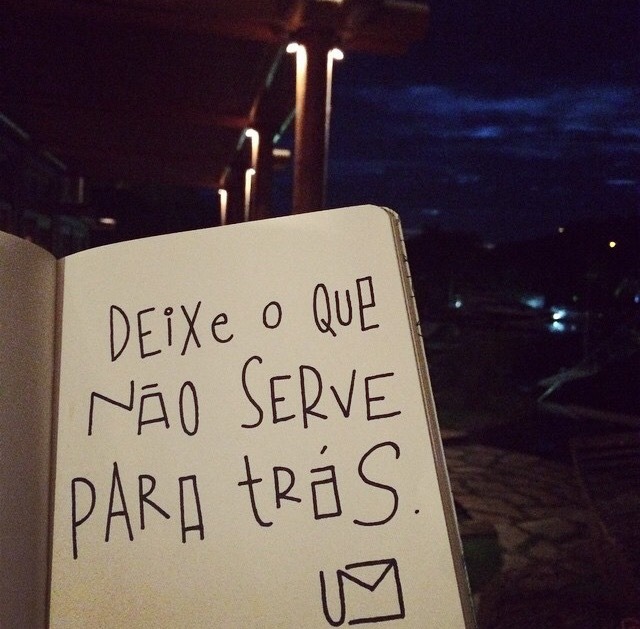 DEiXe o QUE
NÃO SERVE
PARA tRÁS.
UM